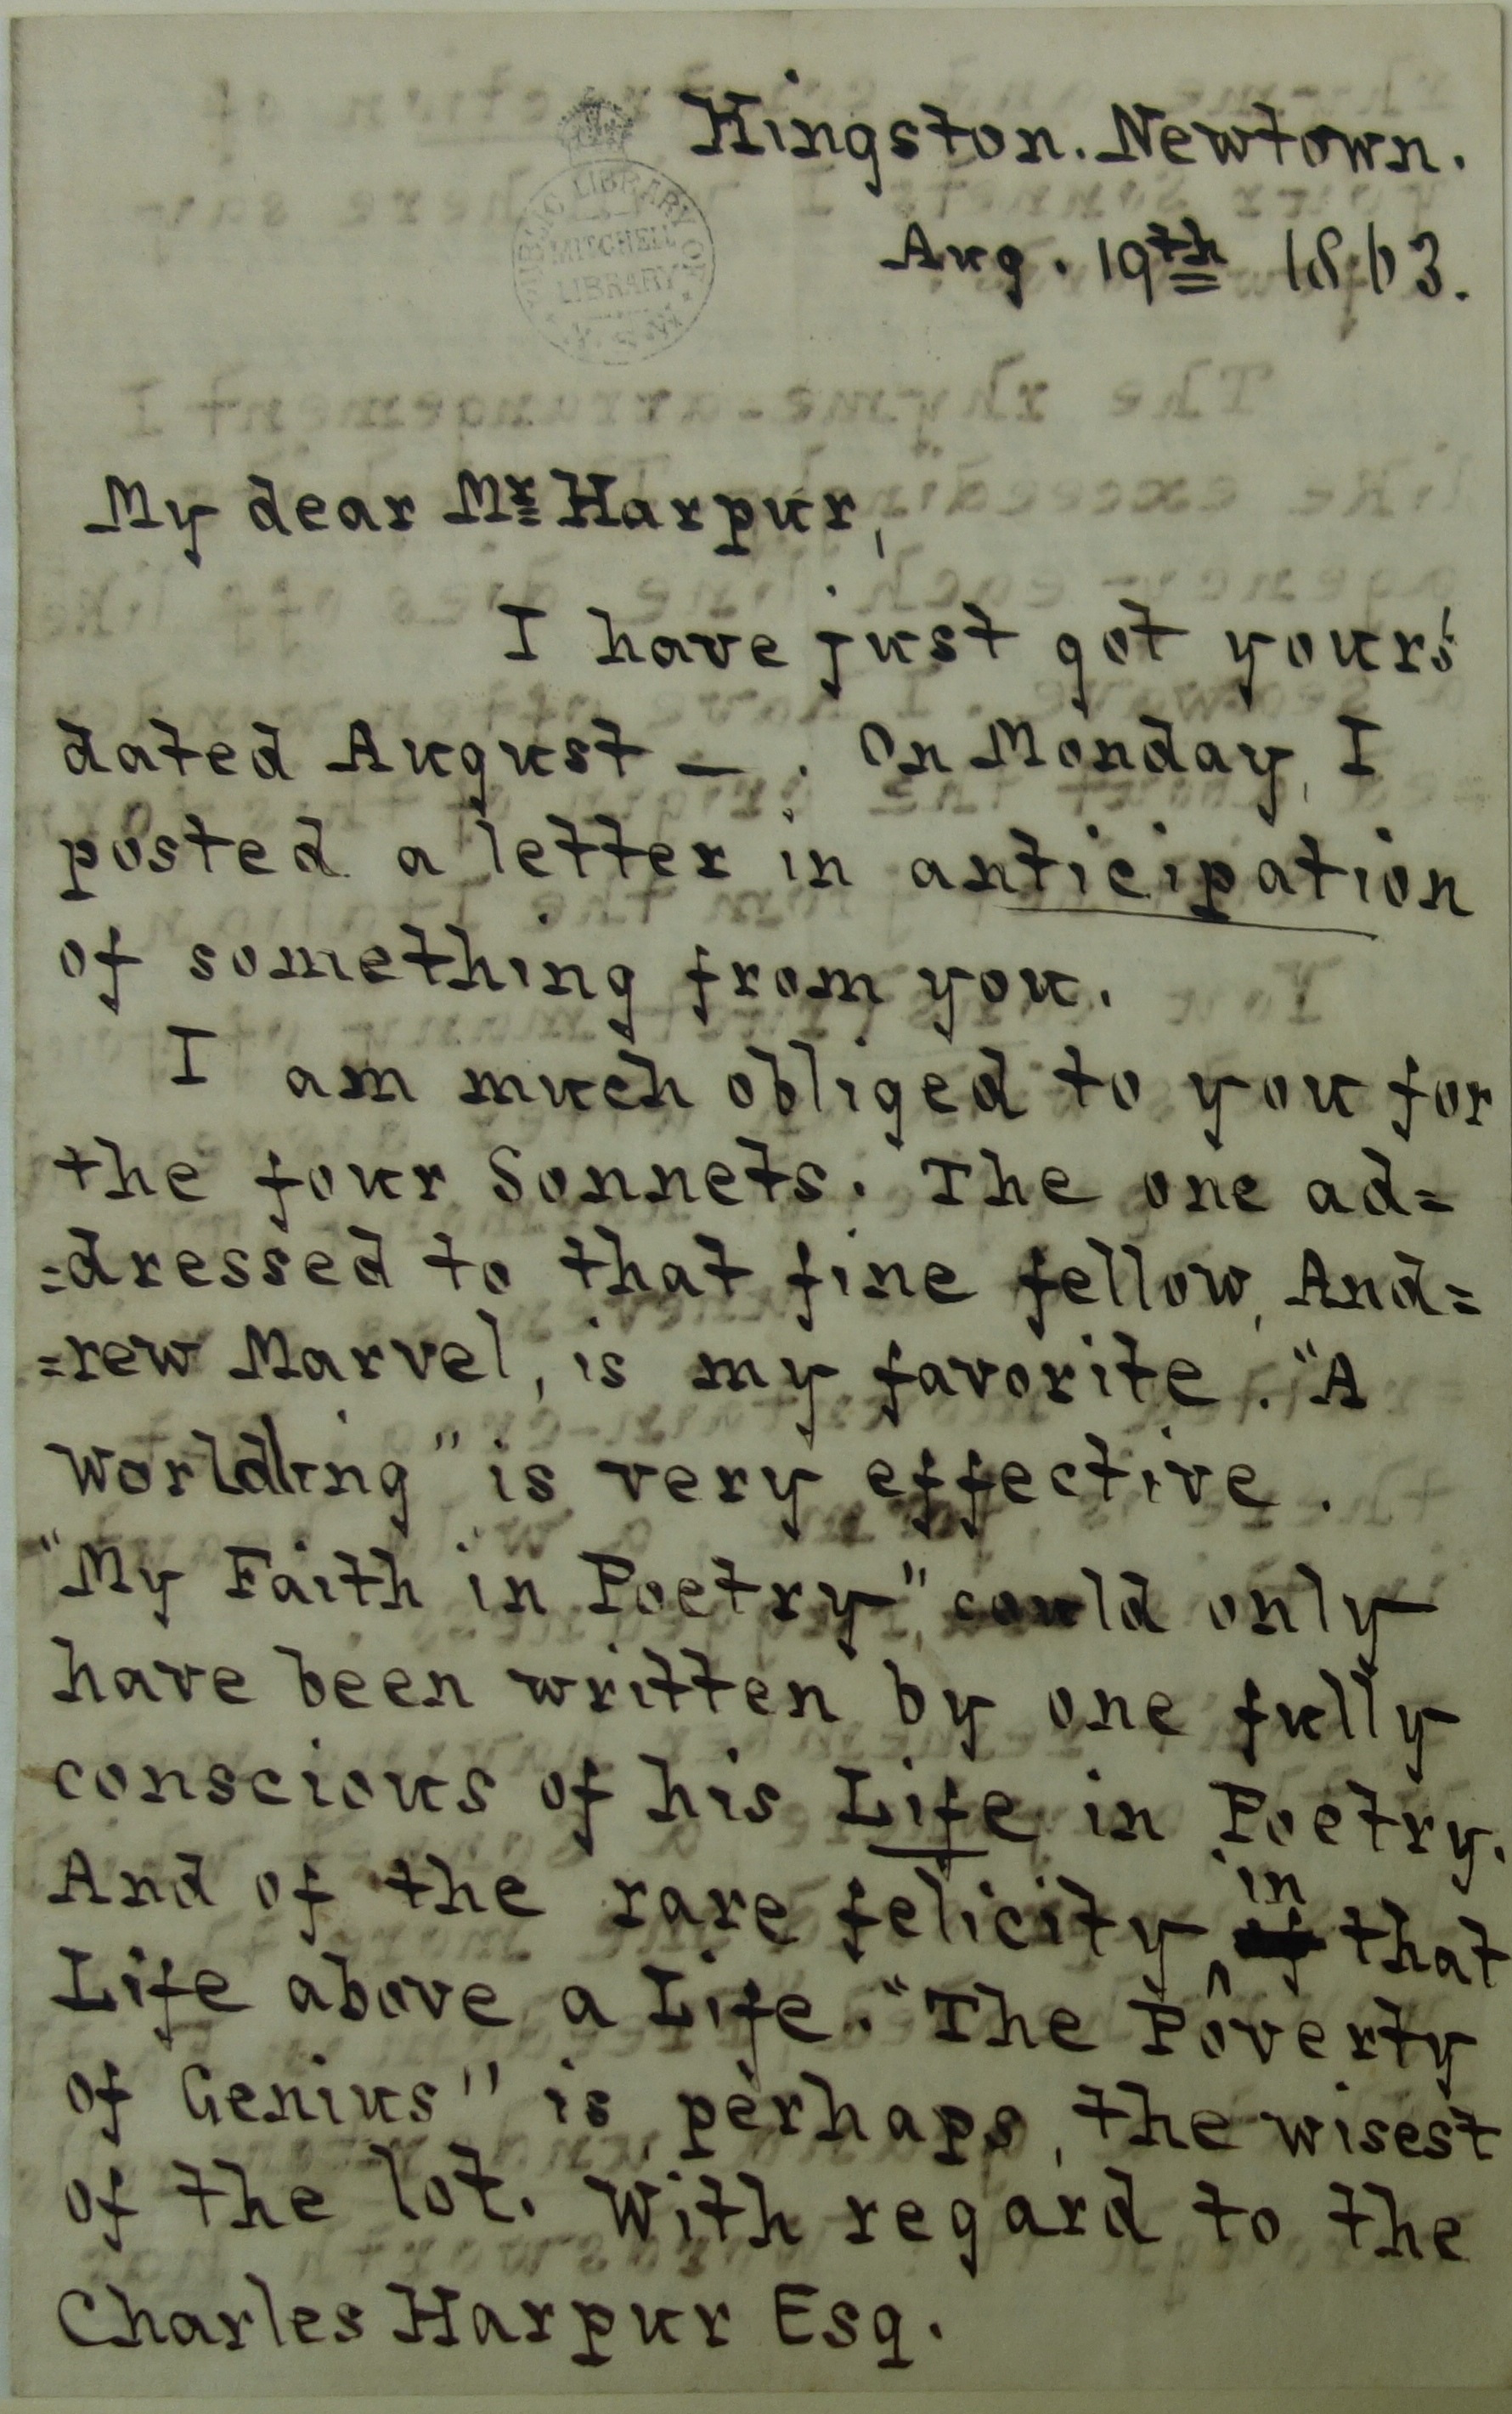 Kingston. Newtown.
PUBLIC LIBRARY OF
MITCHELL
LIBRARY
N.S.W.
Aug. 19th 1863.
My dear Mr Harpur,
I have just got yours
dated August — . On Monday, I
posted a letter in anticipation
of something from you.
I am much obliged to you for
the four Sonnets. The one ad=
=dressed to that fine fellow, And=
=rew Marvel, is my favorite. "A
Worldling" is very effective.
"My Faith in Poetry", could only
have been written by one fully
conscious of his Life in Poetry.
And of the rare felicity in that
Life above a Life. "The Poverty
of Genius" is, perhaps, the wisest
of the lot. With regard to the
Charles Harpur Esq.